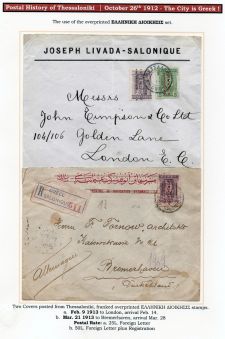 Postal History of Thessaloniki | October 26th 1912 - The City is Greek !
The use of the overprinted ΕΛΛΗΝΙΚΗ ΔΙΟΙΚΗΣΙΣ set.
JOSEPH LIVADA-SALONIQUE
Messrs
John Simpson & Co Ltd
104/106 Golden Lane
London E. C.
Herrn F. Tornow, architekt
Bremerhaven
Allemagne
Two Covers posted from Thessaloniki, franked overprinted ΕΛΛΗΝΙΚΗ ΔΙΟΙΚΗΣΙΣ stamps.
a. Feb. 9 1913 to London, arrival Feb. 14.
b. Mar. 21 1913 to Bremerhaven, arrival Mar. 28
Postal Rate: a. 25L. Foreign Letter
b. 50L. Foreign Letter plus Registration